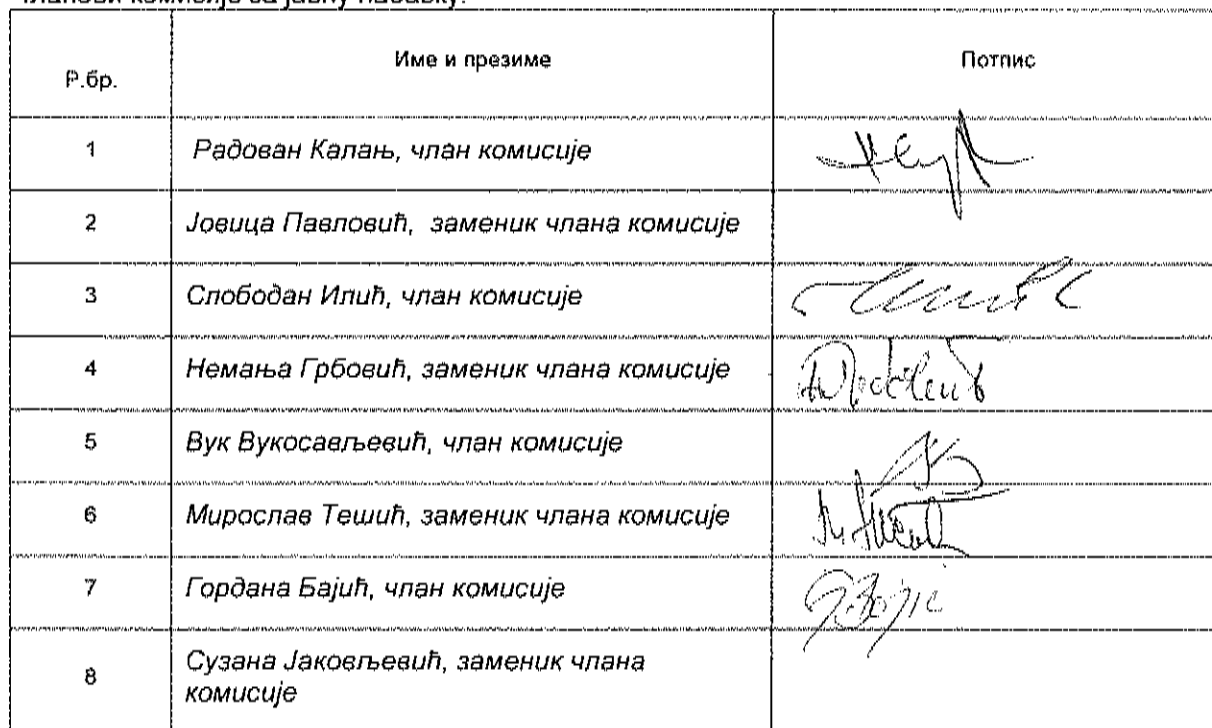 Р.бр. Име и презиме Потпис
1 Радован Калањ, члан комисије
2 Јовица Павловић, заменик члана комисије
3 Слободан Илић, члан комисије
4 Немања Грбовић, заменик члана комисије
5 Вук Вукосављевић, члан комисије
6 Мирослав Тешић, заменик члана комисије
7 Гордана Бајић, члан комисије
8 Сузана Јаковљевић, заменик члана
комисије